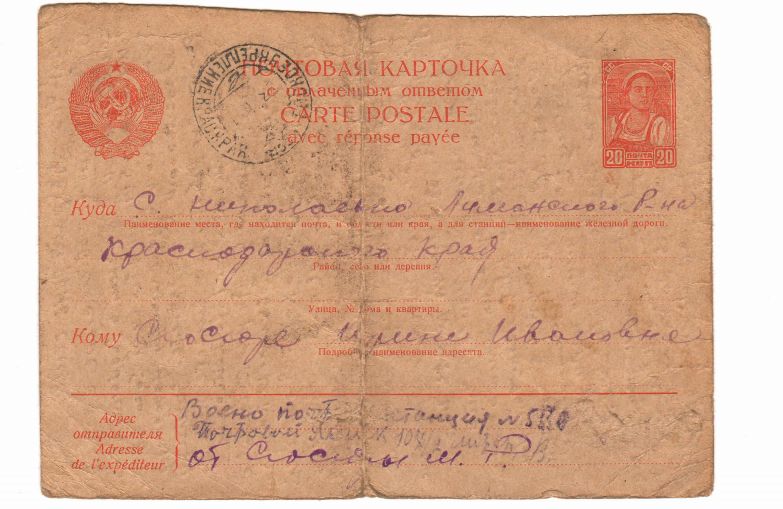 ПОЧТОВАЯ КАРТОЧКА
с оплаченным ответом
CARTE POSTALE
avec réponse payée
ПОЧТА
20 20
Куда С. Николаевко р-на
Наименование места, где находится почта, и области или края, а для станций—наименование железной дороги.
Краснодарского Край
Район, село или деревня.
Улица, № дома и квартиры.
Кому Сюсюре Ирине Ивановне
Подробное наименование адресата.
Адрес
отправителя
Adresse
de l'expéditeur
Воено почт станция №
Почтовой Ящик
от Сюсюры М. Г.